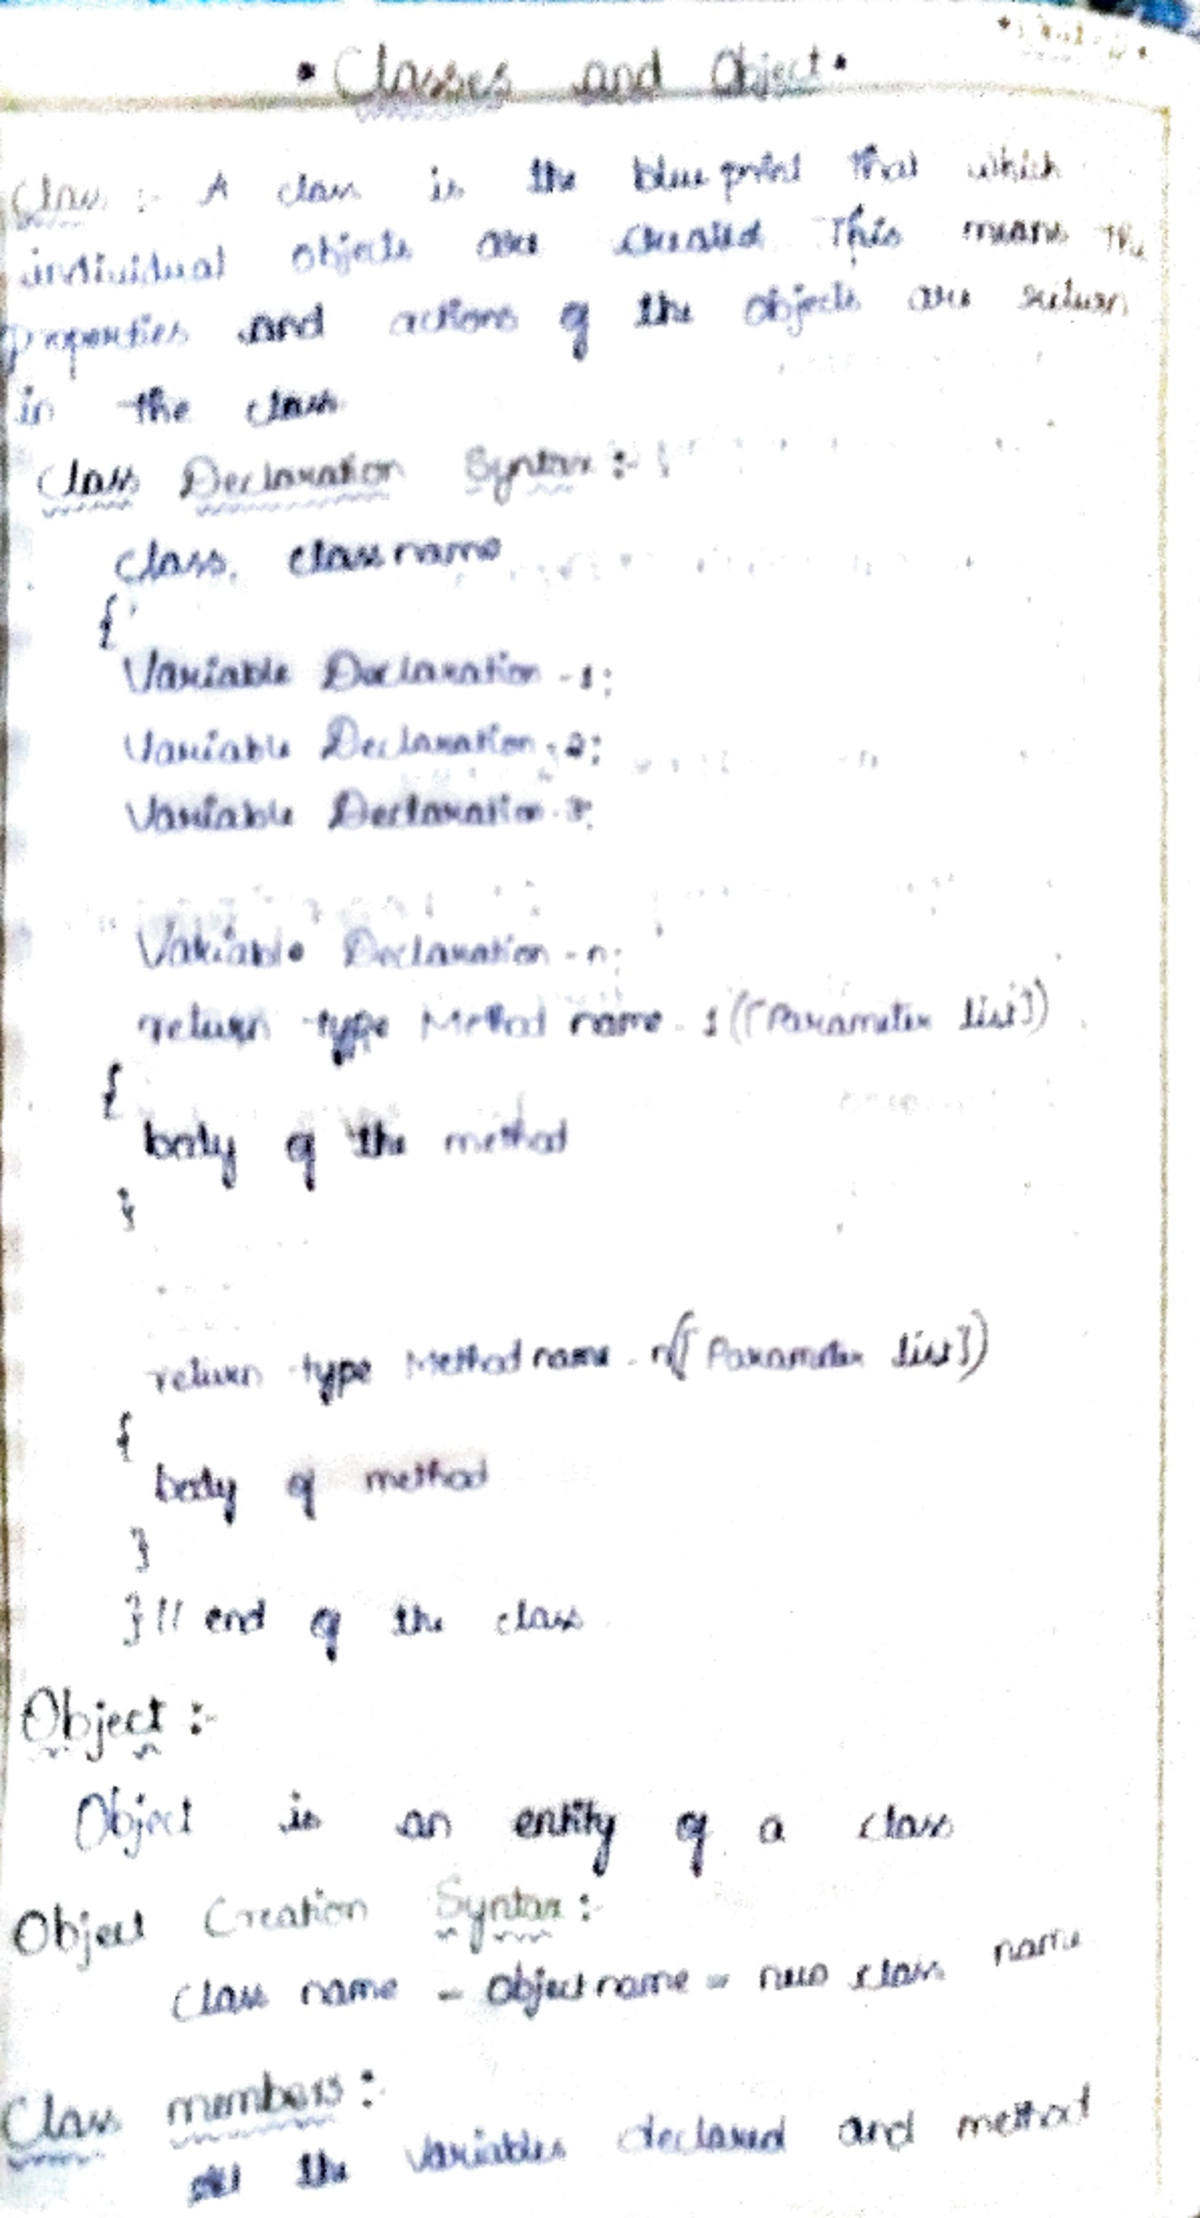 • Classes and Object •
Class :- A class is the blue print that which
individual objects are created This means the
properties and actions of the objects are return
in the class
Class Declaration Syntax :-
class classname
{
Variable Declaration - 1;
Variable Declaration - 2;
Variable Declaration - 3;
Variable Declaration - n;
return type Method name - 1([Parameter list])
{
body of the method
}
return type Method name - n([Parameter list])
{
body of method
}
} // end of the class
Object :-
Object is an entity of a class
Object Creation Syntax :-
Class name - Object name = new class name
Class members :-
all the variables declared and method